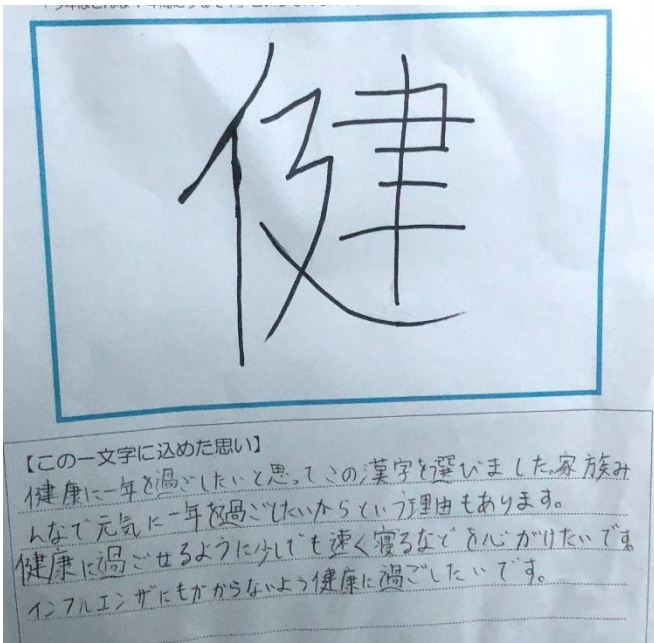 健
【この一文字に込めた思い】
健康に一年を過ごしたいと思ってこの漢字を選びました。家族み
んなで元気に一年を過ごしたいからという理由もあります。
健康に過ごせるように少しでも速く寝るなどを心がけたいです。
インフルエンザにもかからないよう健康に過ごしたいです。